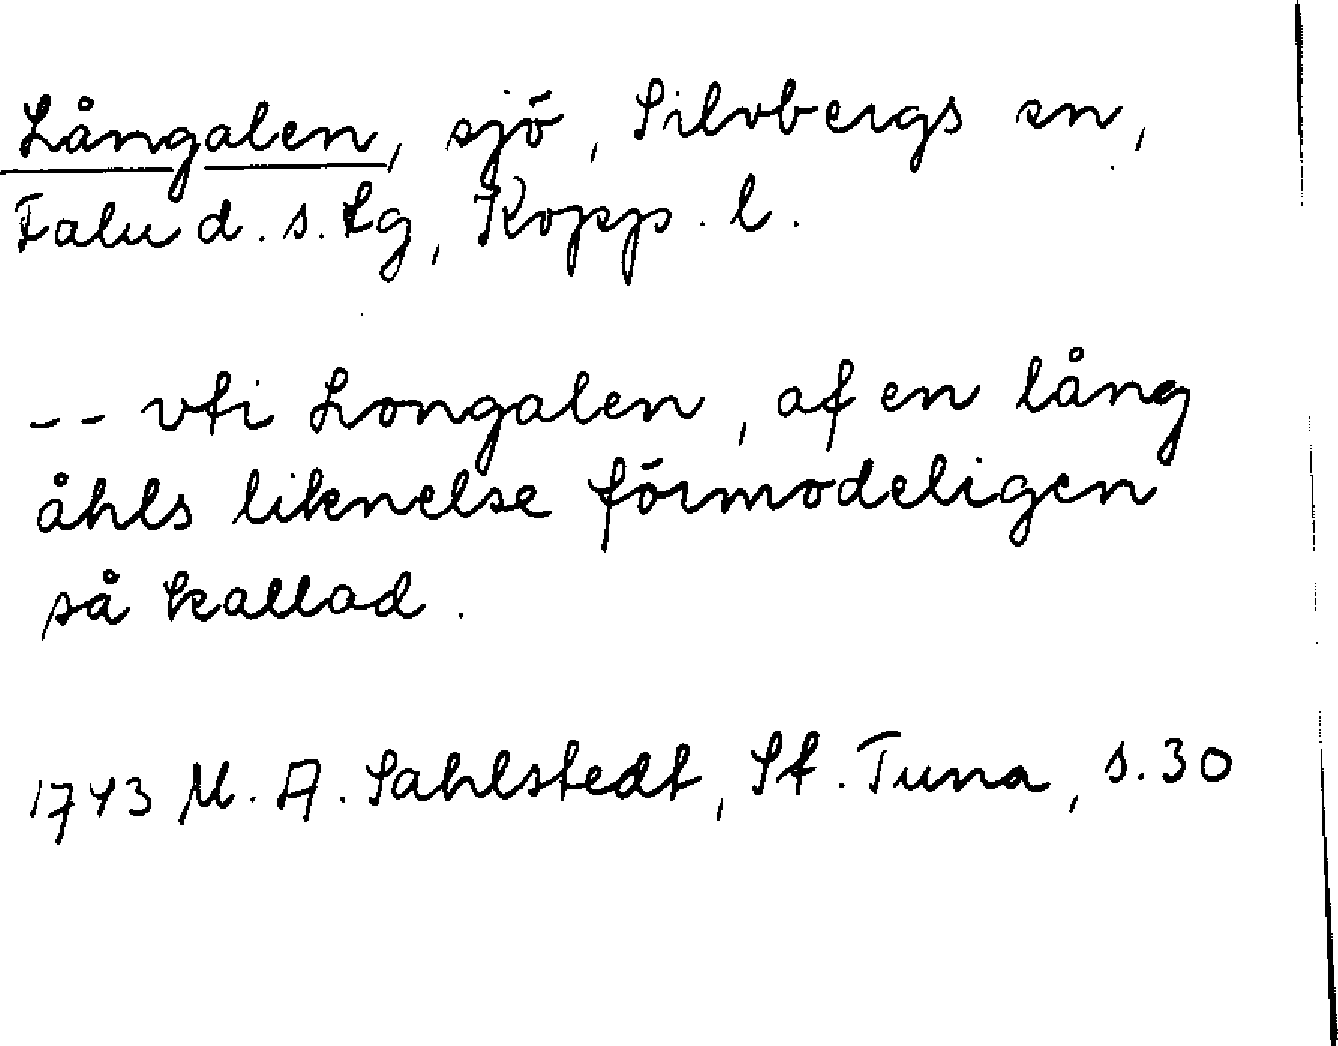 Långalen, sjö, Silvbergs sn,
Falu d. s. tg, Kopp. l.
-- vti Longalen, af en lång
åhls liknelse förmodeligen
så kallad.
1743 M. A. Sahlstedt, St. Tuna, s. 30